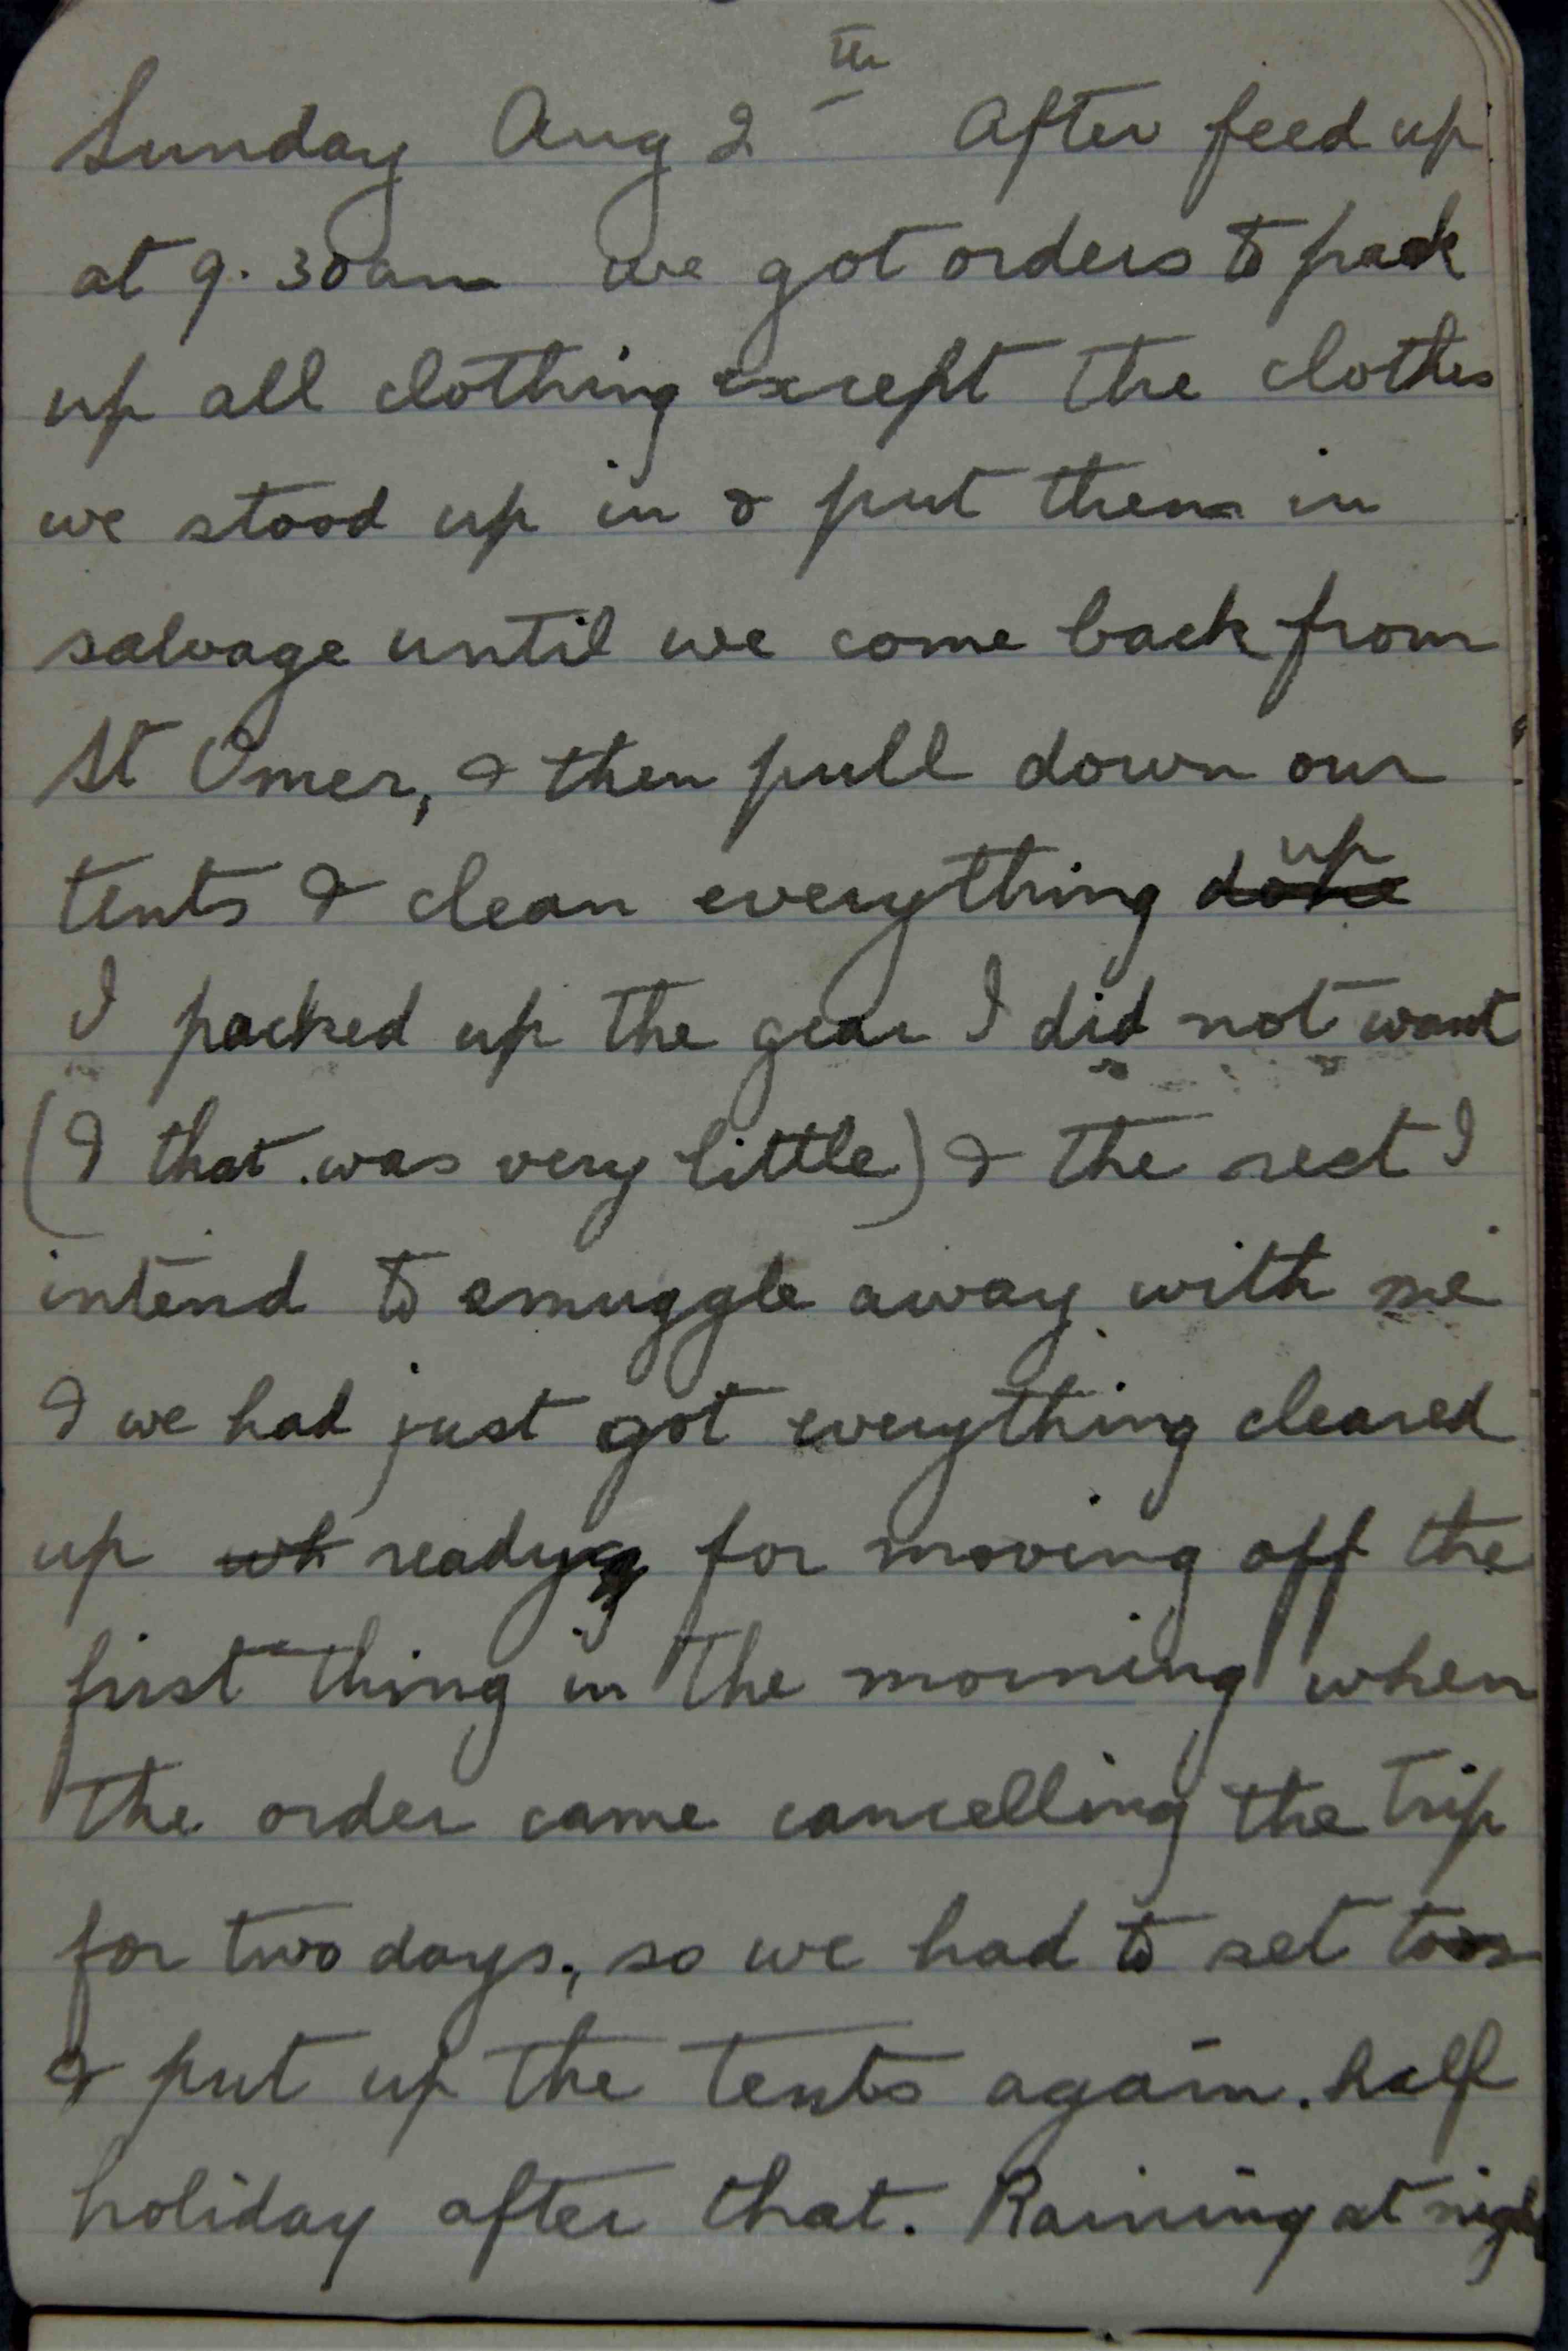 Sunday Aug 2th After feed up
at 9.30am we got orders to pack
up all clothing except the clothes
we stood up in & put them in
salvage until we come back from
St Omer, & then pull down our
tents & clean everything done up
I packed up the gear I did not want
(& that was very little) & the rest I
intend to smuggle away with me
& we had just got everything cleared
up wh ready for moving off the
first thing in the morning when
the order came cancelling the trip
for two days, so we had to set too
& put up the tents again. half
holiday after that. Raining at night